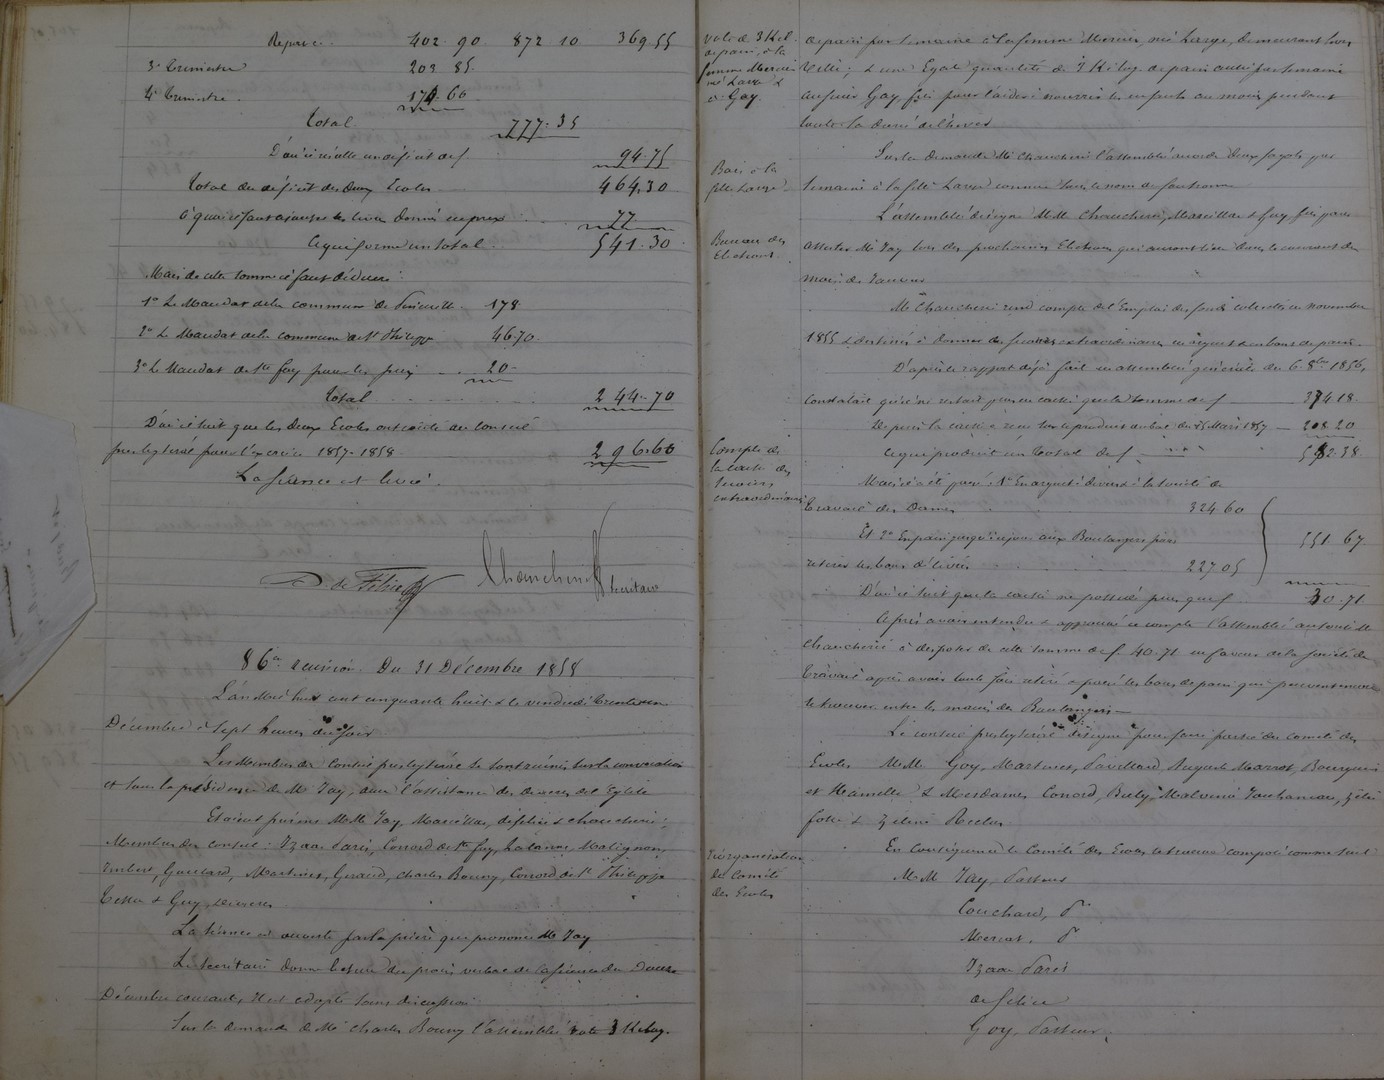 Report. 402 90 872 10 369 55
3e Trimestre 209 85
4e Trimestre 60
Total 777.35
D'où résulte un déficit de f 94.75
Total du déficit des deux Ecoles 464.30
à quoi il faut ajouter les livres donnés en prix 77
Ce qui forme un total 541.30
Mais de cette somme il faut déduire :
1° Le Mandat de la commune de 178
2° Le Mandat de la commune de St Philippe 46.70
3° Le Mandat de Ste foy pour les prix 20
Total 244-70
D'où il suit que les deux Ecoles ont coûté au Conseil
presbytéral pour l'exercice 1857-1858 296.60
La séance est levée.
Secrétaire
86e réunion. Du 31 Décembre 1858
L'an Mil huit cent cinquante huit & le vendredi Trente un
Décembre à sept heures du soir
Les Membres du Conseil presbytéral se sont réunis sur la convocation
et sous la présidence de Mr Jay, avec l'assistance des diacres de l'Eglise
Etaient présens MM Jay, Marcillac, & Chaucherie ;
Membres du conseil : Izaac Paris, Conord de Ste foy, Matignon,
Imbert, Martinet, Giraud, Charles Bourry, Conord de St Philippe
& Guy, Diacres
La séance est ouverte par la prière que prononce Mr Jay
Le Secrétaire donne lecture du procès verbal de la séance du Douze
Décembre courant, Il est adopté sans discussion
Sur la demande de Mr Charles Bourry l'assemblée vote 3 Kilog.
vote de 3 Kil.
de pain, à la
femme Mercier
née Large &
à Gay.
de pain par semaine à la femme Mercier, née Large, demeurant hors
Ville ; & une Egale quantité de 3 Kilog. de pain aussi par semaine
au sieur Gay, fils pour l'aider à nourrir les enfants au moins pendant
toute la durée de l'hiver
Bois à la
fille Large
Sur la demande Mr Chaucherie l'assemblée accorde deux fagots par
semaine à la fille Large connue sous le nom de
Bureau des
Elections
L'assemblée désigne MM Chaucherie, Marcillac & Guy, fils pour
assister Mr Jay lors des prochaines Elections qui auront lieu dans le courant du
mois de Janvier
Compte de
la caisse des
secours
extraordinaires
Mr Chaucherie rend compte de l'Emploi des fonds collectés en novembre
1855 & destinés à donner des secours extraordinaires en argent & en bons de pain.
D'après le rapport déjà fait en assemblée générale du 6 8bre 1856,
Constatait qu'il ne restait plus en caisse que la somme de f 374 18
Depuis la caisse a reçu sur le produit du bal du Mars 1857 208 20
Ce qui produit un total de f 582.38
Mais il a été payé 1° En argent divers à la société de
travail des Dames 324 60
Et 2° En pain jusqu'à ce jour aux Boulangers pour
retirer les bons délivrés 227 05
551 67
D'où il suit que la caisse ne possède plus que f 30.71
Après avoir entendu & approuvé ce compte l'assemblée autorise Mr
Chaucherie à disposer de cette somme de f 40.71 en faveur de la Société de
Travail après avoir toute fois retiré & payé les bons de pain qui peuvent encore
se trouver entre les mains des Boulangers
Le conseil presbytéral désigne pour faire partie du comité des
Ecoles MM Goy, Martinet, Pavillard, Auguste Marrot, Bourguin
et Hamelle & Mesdames Conord, Malvina
& Zélime Reclus
Réorganisation
du Comité
des Ecoles
En Conséquence le Comité des Ecoles se trouve composé comme suit
MM Jay, Pasteur
Couchard, P.
Mercat, P
Izaac Paris
de Félice
Goy, Pasteur,